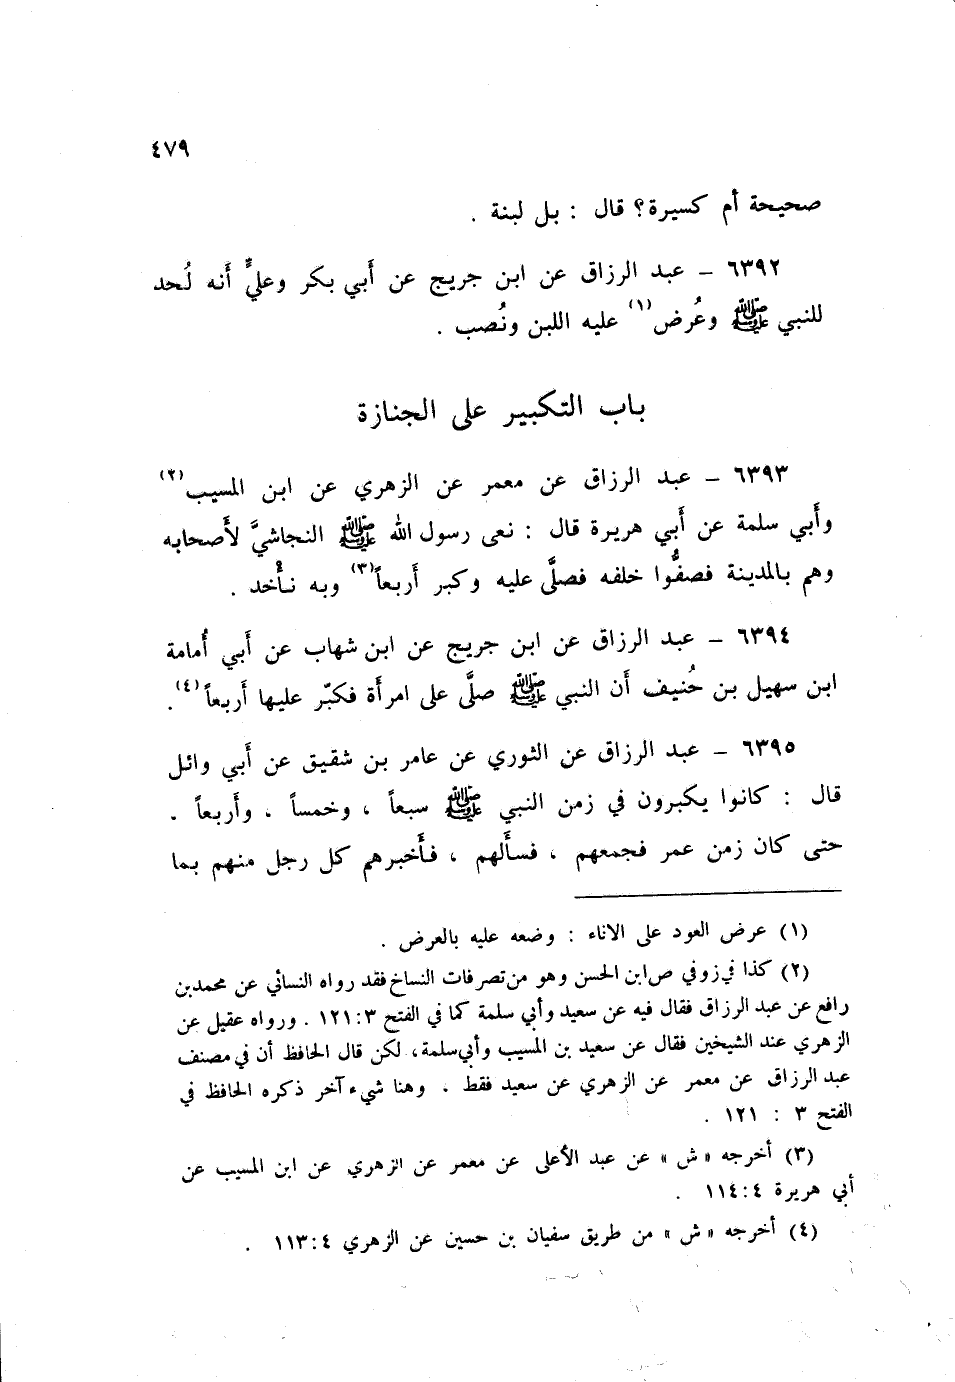 ٤٧٩
صحيحة أم كسيرة؟ قال : بل لبنة .
٦٣٩٢ – عبد الرزاق عن ابن جريج عن أَبي بكر وعليٍّ أَنه لُحد
للنبي ﷺ وعُرض(١) عليه اللبن ونُصب .
باب التكبير على الجنازة
٦٣٩٣ – عبد الرزاق عن معمر عن الزهري عن ابن المسيب(٢)
وأَبي سلمة عن أَبي هريرة قال : نعى رسول الله ﷺ النجاشيَّ لأَصحابه
وهم بالمدينة فصفُّوا خلفه فصلَّى عليه وكبر أَربعاً(٣) وبه نأْخد .
٦٣٩٤ – عبد الرزاق عن ابن جريج عن ابن شهاب عن أَبي أُمامة
ابن سهيل بن حُنيف أَن النبي ﷺ صلَّى على امرأَة فكبّر عليها أَربعاً(٤) .
٦٣٩٥ – عبد الرزاق عن الثوري عن عامر بن شقيق عن أَبي وائل
قال : كانوا يكبرون في زمن النبي ﷺ سبعاً ، وخمساً ، وأَربعاً .
حتى كان زمن عمر فجمعهم ، فسأَلهم ، فأَخبرهم كل رجل منهم بما
(١) عرض العود على الاناء : وضعه عليه بالعرض .
(٢) كذا في ز وفي ص ابن الحسن وهو من تصرفات النساخ فقد رواه النسائي عن محمد بن
رافع عن عبد الرزاق فقال فيه عن سعيد وأبي سلمة كما في الفتح ٣ :١٢١ . ورواه عقيل عن
الزهري عند الشيخين فقال عن سعيد بن المسيب وأبي سلمة، لكن قال الحافظ أن في مصنف
عبد الرزاق عن معمر عن الزهري عن سعيد فقط . وهنا شيء آخر ذكره الحافظ في
الفتح ٣ : ١٢١ .
(٣) أخرجه «ش» عن عبد الأعلى عن معمر عن الزهري عن ابن المسيب عن
أبي هريرة ٤ :١١٤ .
(٤) أخرجه «ش» من طريق سفيان بن حسين عن الزهري ٤ :١١٣ .